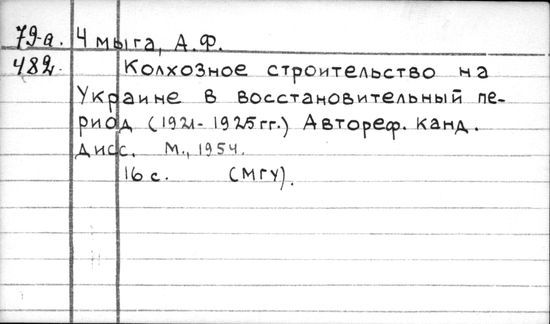 79-а. Чмыга, А.Ф.
482. Колхозное строительство на
Украине в восстановительный пе-
риод (1921-1925гг.) Автореф. канд.
дисс. М., 1954.
16 с. (МГУ).